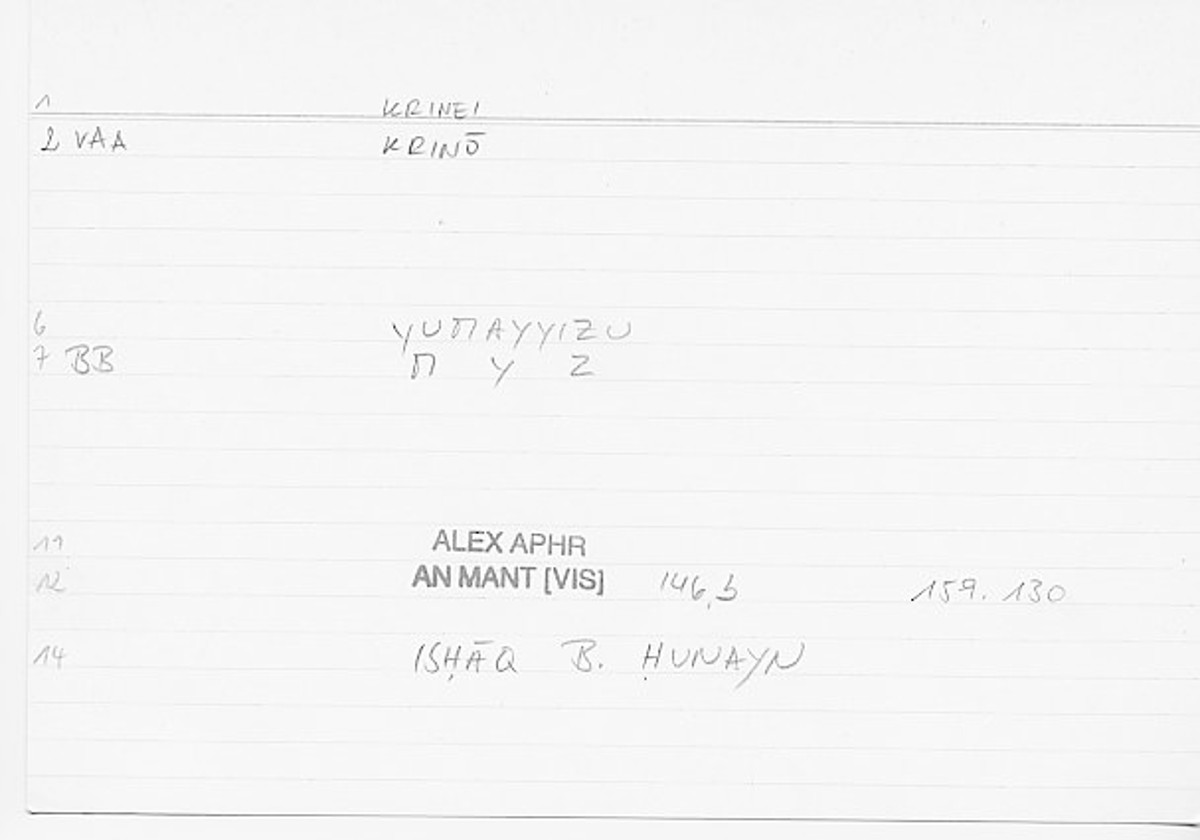 1 KRINEI
2 VAA KRINŌ
6 YUMAYYIZU
7 BB M Y Z
11 ALEX APHR
12 AN MANT [VIS] 146,5 159.130
14 ISḤĀQ B. ḤUNAYN